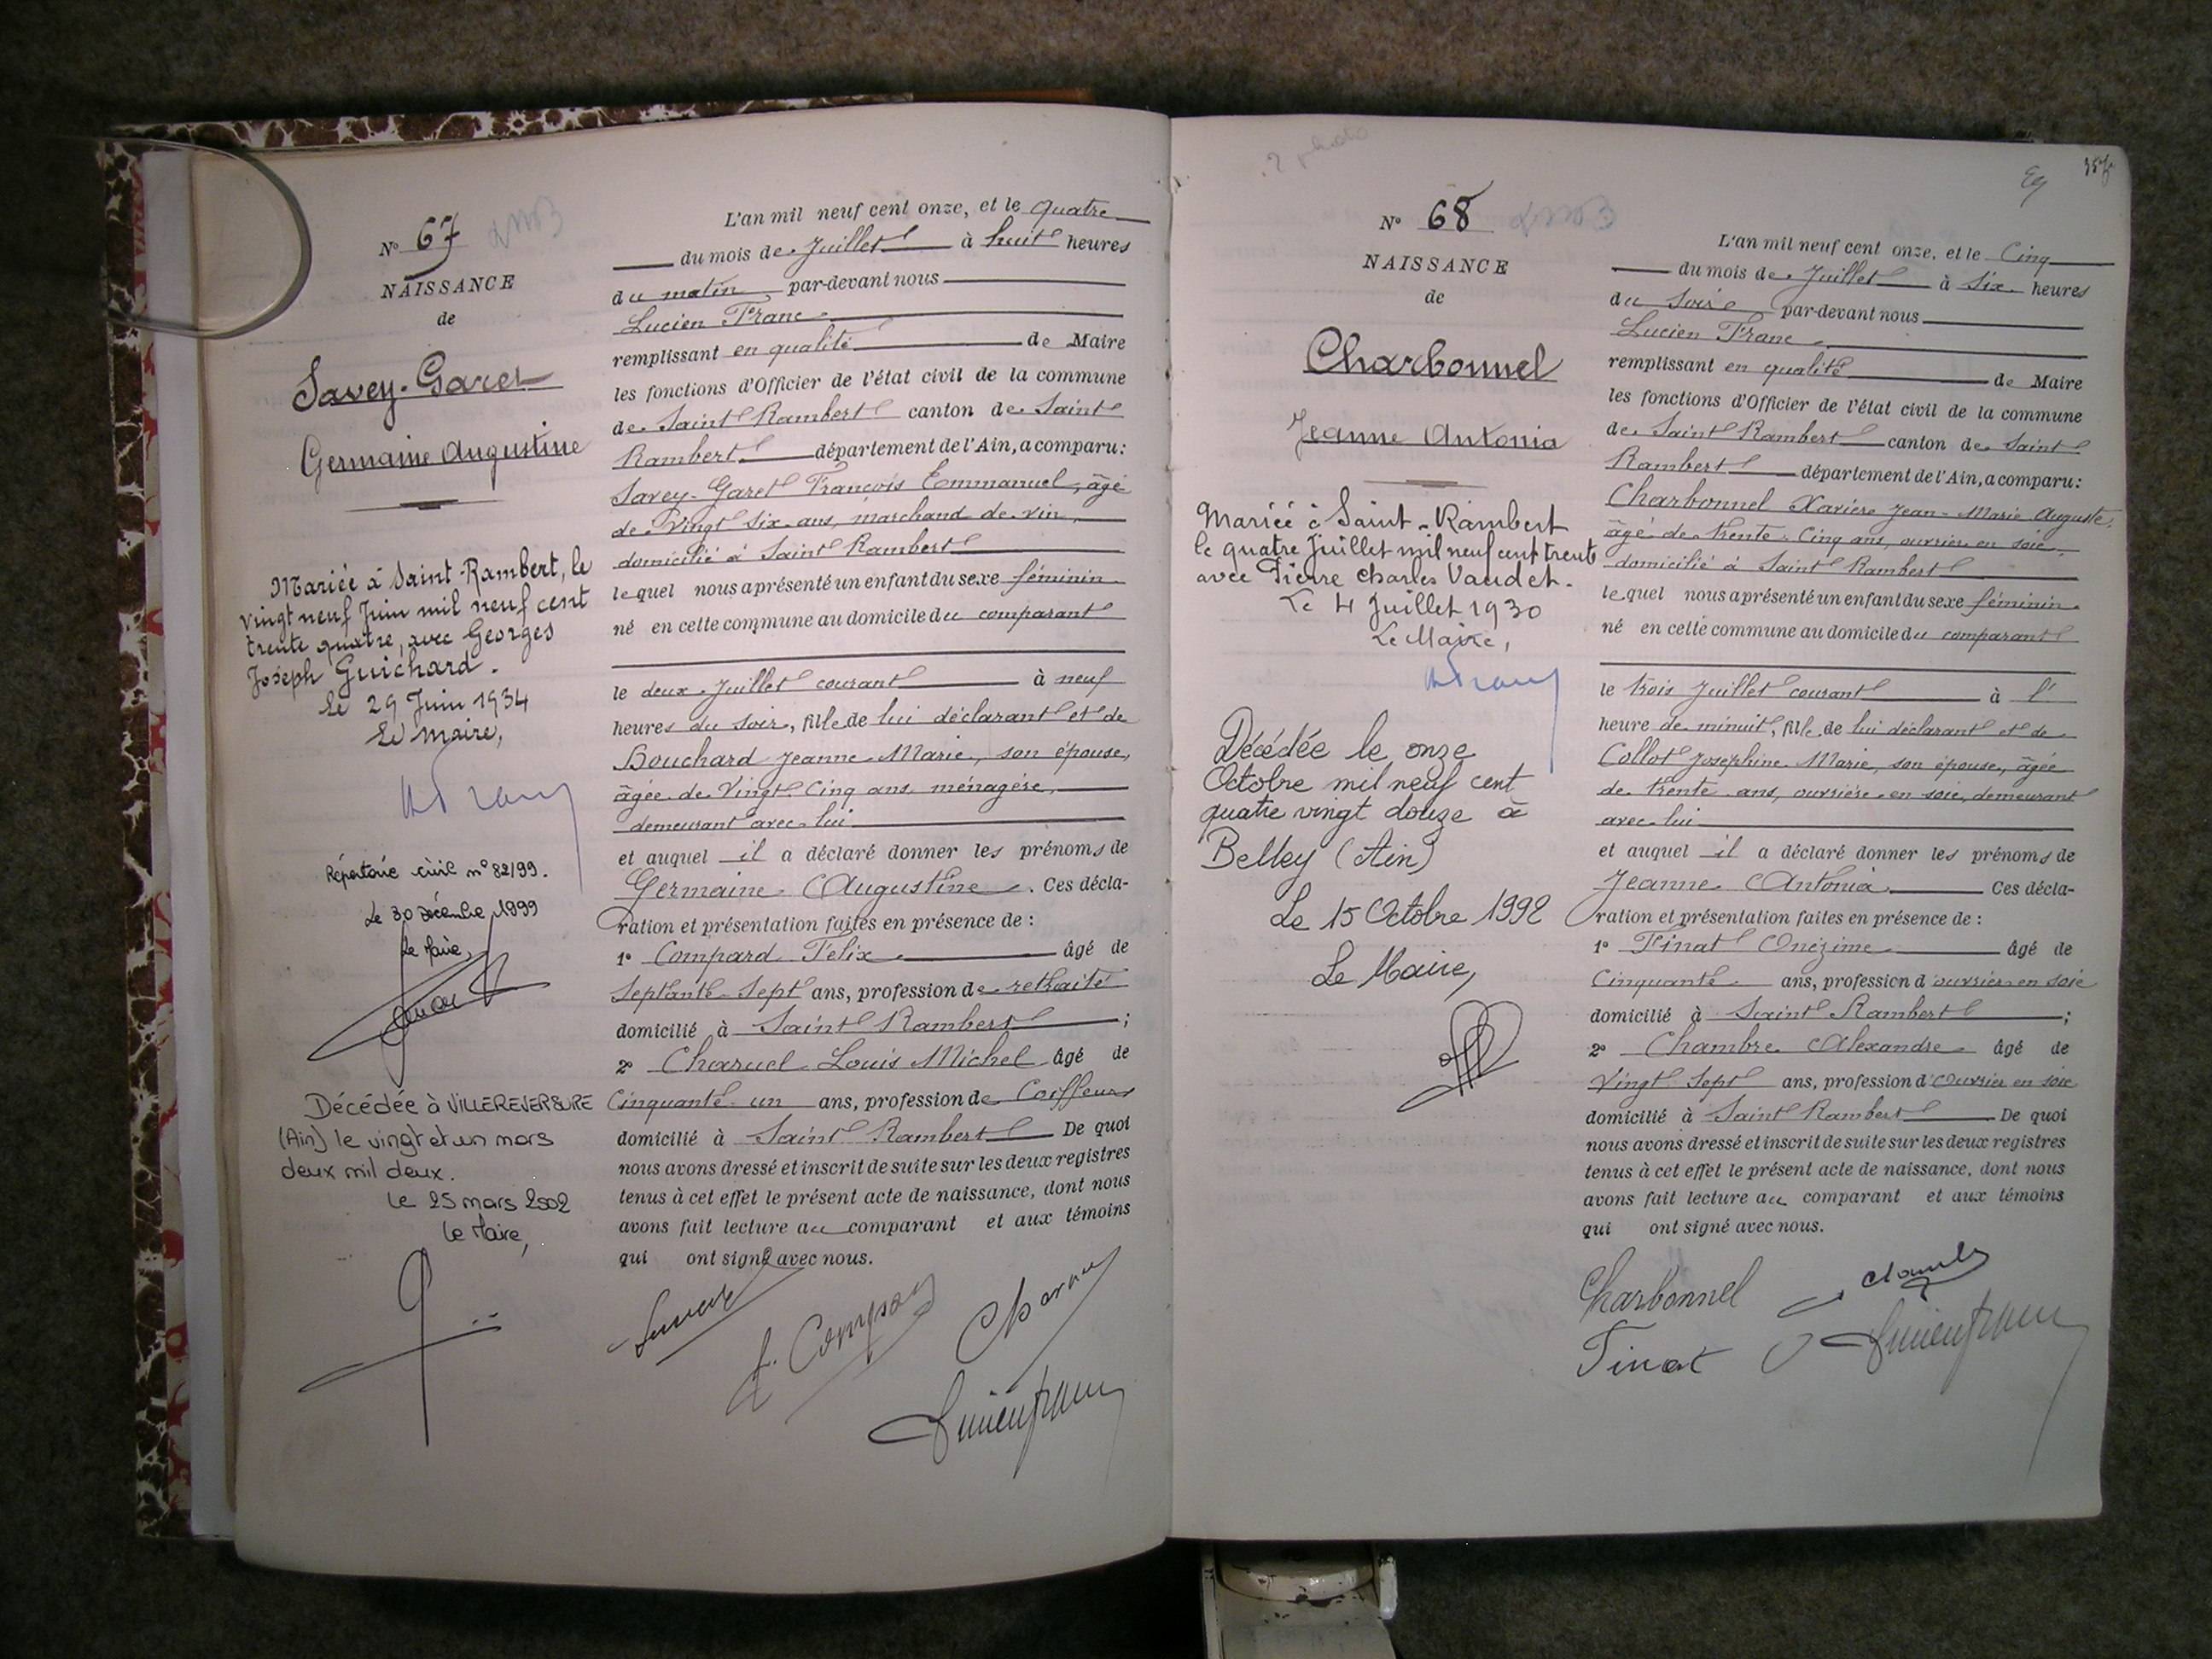 N° 67
NAISSANCE
de
Savey-Garet
Germaine Augustine
Mariée à Saint-Rambert, le
vingt neuf Juin mil neuf cent
trente quatre, avec Georges
Joseph Guichard.
Le 29 Juin 1934
Le Maire,
Répertoire civil n° 82/99.
Le 30 décembre 1999
Le Maire,
Décédée à VILLEREVERSURE
(Ain) le vingt et un mars
deux mil deux.
Le 25 mars 2002
Le Maire,
L'an mil neuf cent onze, et le quatre
du mois de Juillet à huit heures
du matin par-devant nous
Lucien Franc
remplissant en qualité de Maire
les fonctions d'Officier de l'état civil de la commune
de Saint Rambert canton de Saint
Rambert département de l'Ain, a comparu:
Savey-Garet François Emmanuel, âgé
de Vingt six ans, marchand de vin,
domicilié à Saint Rambert
lequel nous a présenté un enfant du sexe féminin
né en cette commune au domicile du comparant
le deux Juillet courant à neuf
heures du soir, fille de lui déclarant et de
Bouchard Jeanne Marie, son épouse,
âgée de Vingt Cinq ans ménagère,
demeurant avec lui
et auquel il a déclaré donner les prénoms de
Germaine Augustine. Ces décla-
ration et présentation faites en présence de :
1° Compard Félix âgé de
Septante Sept ans, profession de rethaité
domicilié à Saint Rambert ;
2° Charuel Louis Michel âgé de
Cinquante un ans, profession de Coiffeur
domicilié à Saint Rambert De quoi
nous avons dressé et inscrit de suite sur les deux registres
tenus à cet effet le présent acte de naissance, dont nous
avons fait lecture au comparant et aux témoins
qui ont signé avec nous.
N° 68
NAISSANCE
de
Charbonnel
Jeanne Antonia
Mariée à Saint-Rambert
le quatre Juillet mil neuf cent trente
avec Pierre Charles Vaudet.
Le 4 Juillet 1930
Le Maire,
Décédée le onze
Octobre mil neuf cent
quatre vingt douze à
Belley (Ain)
Le 15 Octobre 1992
Le Maire,
L'an mil neuf cent onze, et le Cinq
du mois de Juillet à Six heures
du Soir par-devant nous
Lucien Franc
remplissant en qualité de Maire
les fonctions d'Officier de l'état civil de la commune
de Saint Rambert canton de Saint
Rambert département de l'Ain, a comparu:
Charbonnel Xavier Jean-Marie Auguste,
âgé de trente Cinq ans, ouvrier en soie,
domicilié à Saint Rambert
lequel nous a présenté un enfant du sexe féminin
né en cette commune au domicile du comparant
le trois Juillet courant à l'
heure de minuit, fille de lui déclarant et de
Collot Joséphine Marie, son épouse, âgée
de trente ans, ouvrière en soie, demeurant
avec lui
et auquel il a déclaré donner les prénoms de
Jeanne Antonia. Ces décla-
ration et présentation faites en présence de :
1° Tinat Onézime âgé de
Cinquante ans, profession d'ouvrier en soie
domicilié à Saint Rambert ;
2° Chambre Alexandre âgé de
Vingt Sept ans, profession d'ouvrier en soie
domicilié à Saint Rambert De quoi
nous avons dressé et inscrit de suite sur les deux registres
tenus à cet effet le présent acte de naissance, dont nous
avons fait lecture au comparant et aux témoins
qui ont signé avec nous.
Charbonnel
Tinat